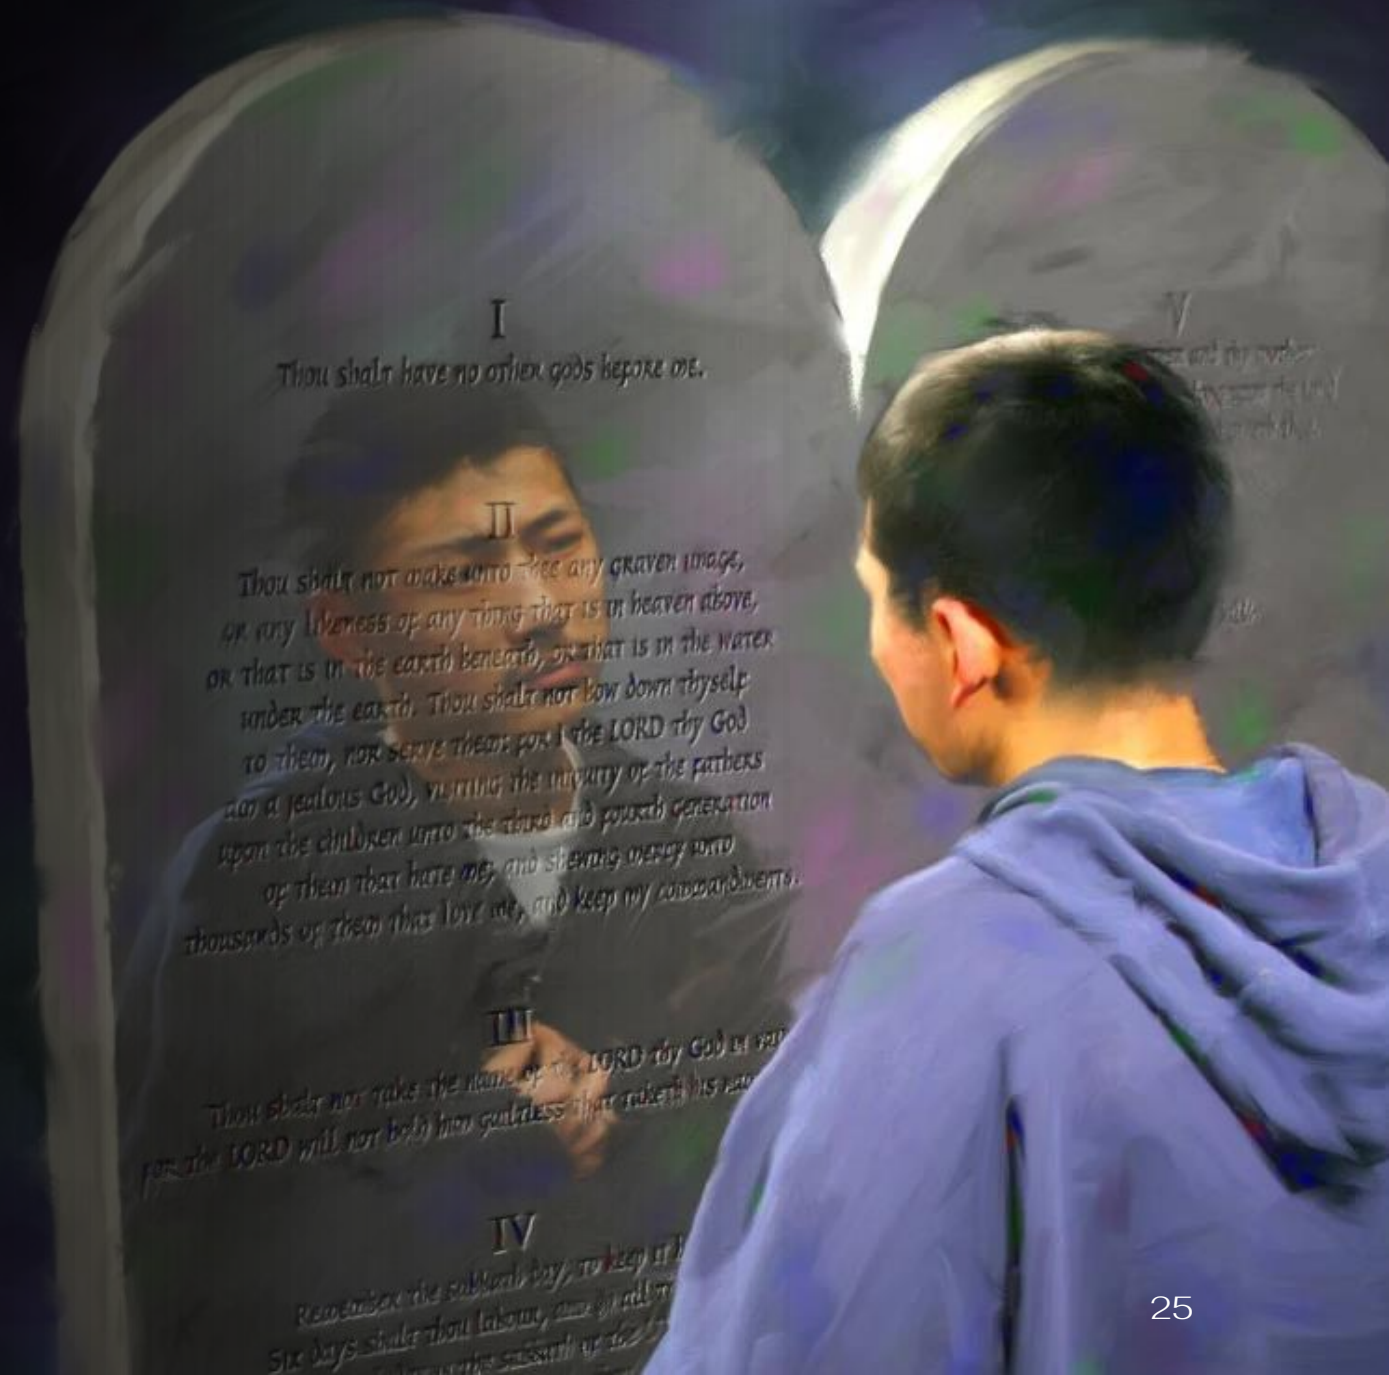 I
Thou shalt have no other gods before me.
II
Thou shalt not make unto thee any graven image,
or any likeness of any thing that is in heaven above,
or that is in the earth beneath, or that is in the water
under the earth. Thou shalt not bow down thyself
to them, nor serve them: for I the LORD thy God
am a jealous God, visiting the iniquity of the fathers
upon the children unto the third and fourth generation
of them that hate me; and shewing mercy unto
thousands of them that love me, and keep my commandments.
III
Thou shalt not take the name of the LORD thy God in
for the LORD will not hold him guiltless that taketh his
IV
Remember the sabbath day, to keep it
Six days shalt thou labour, and do all
the sabbath of the
V
and thy mother
25